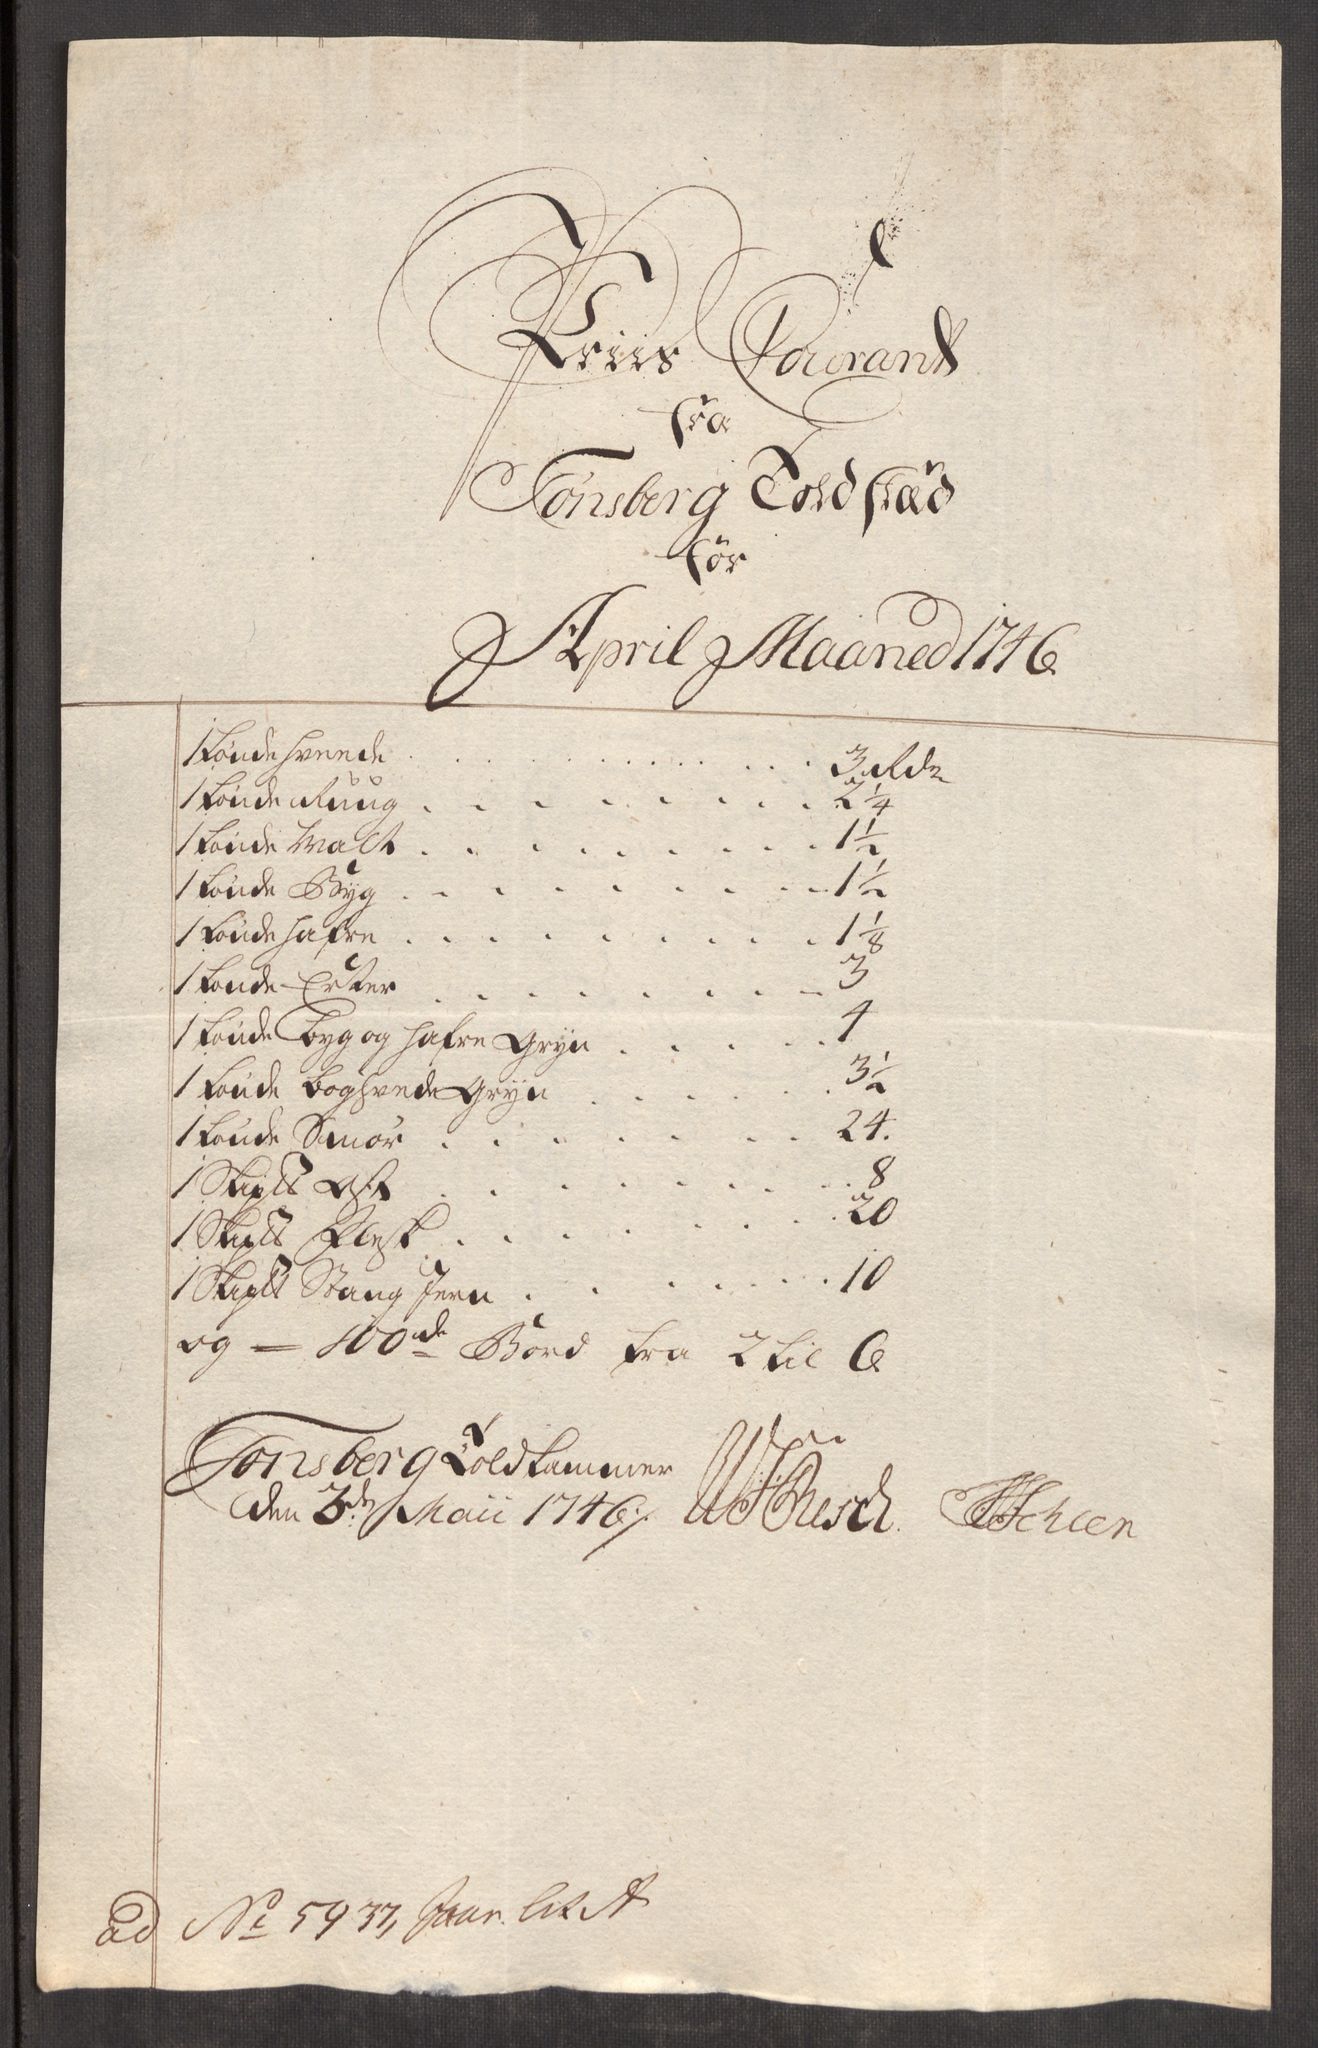 Priis Courant
fra
Tønsberg Toldstæd
for
April Maaned 1746
1 tønde hvede . . . . . . . . . . 3 Rdr
1 tønde Rüüg . . . . . . . . . 2 1/4
1 tønde Malt . . . . . . . . . 1 1/2
1 tønde Byg . . . . . . . . . 1 1/2
1 tønde hafre . . . . . . . . . 1 1/8
1 tønde Erter . . . . . . . . . 3
1 tønde byg og hafre Gryn . . . . . 4
1 tønde boghvede Gryn . . . . . . 3 1/2
1 tønde Smør . . . . . . . . 24.
1 Skp℔ Ost . . . . . . . . . 8
1 Skp℔ Flesk . . . . . . . . 20
1 Skp℔ Stang Jern . . . . . . 10
og — 100de Bord fra 2 til 6
Tonsberg Toldkammer
den 3de Maii 1746
ad No 5937,